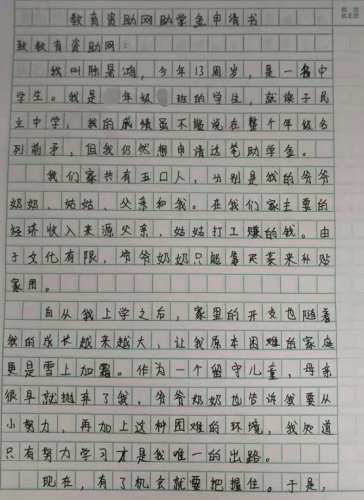 教育资助网助学金申请书
致教育资助网：
我叫陈昊鸿，今年13周岁，是一名中
学生。我是 年级 班的学生，就读于民
主中学，我的成绩虽不能说在整个年级名
列前矛，但我仍然想申请这笔助学金。
我们家共有五口人，分别是我的爷爷
奶奶、姑姑、父亲和我。在我们家主要的
经济收入来源父亲、姑姑打工赚的钱。由
于文化有限，爷爷奶奶只能靠卖菜来补贴
家用。
自从我上学之后，家里的开支也随着
我的成长越来越大，让我原本困难的家庭
更是雪上加霜。作为一个留守儿童，母亲
很早就抛弃了我，爷爷奶奶也告诉我要从
小努力，再加上这种困难的环境，我知道
只有努力学习才是我唯一的出路。
现在，有了机会就要把握住。于是，